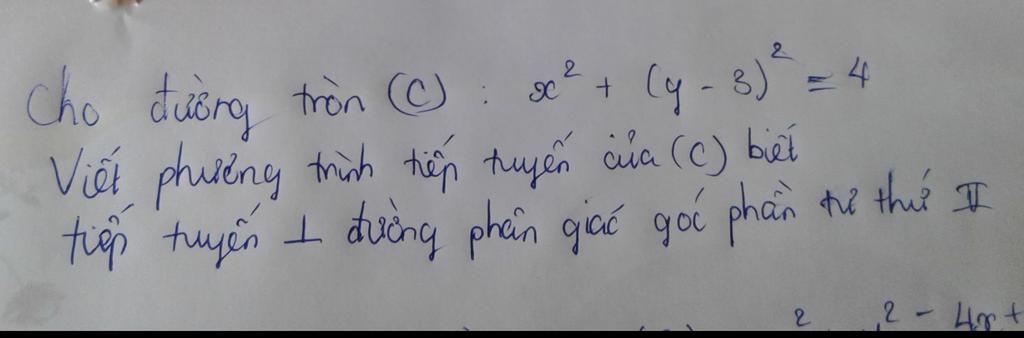 Cho đường tròn (C) : x² + (y - 3)² = 4
Viết phương trình tiếp tuyến của (C) biết
tiếp tuyến ⊥ đường phân giác góc phần tư thứ II
² - 4x +